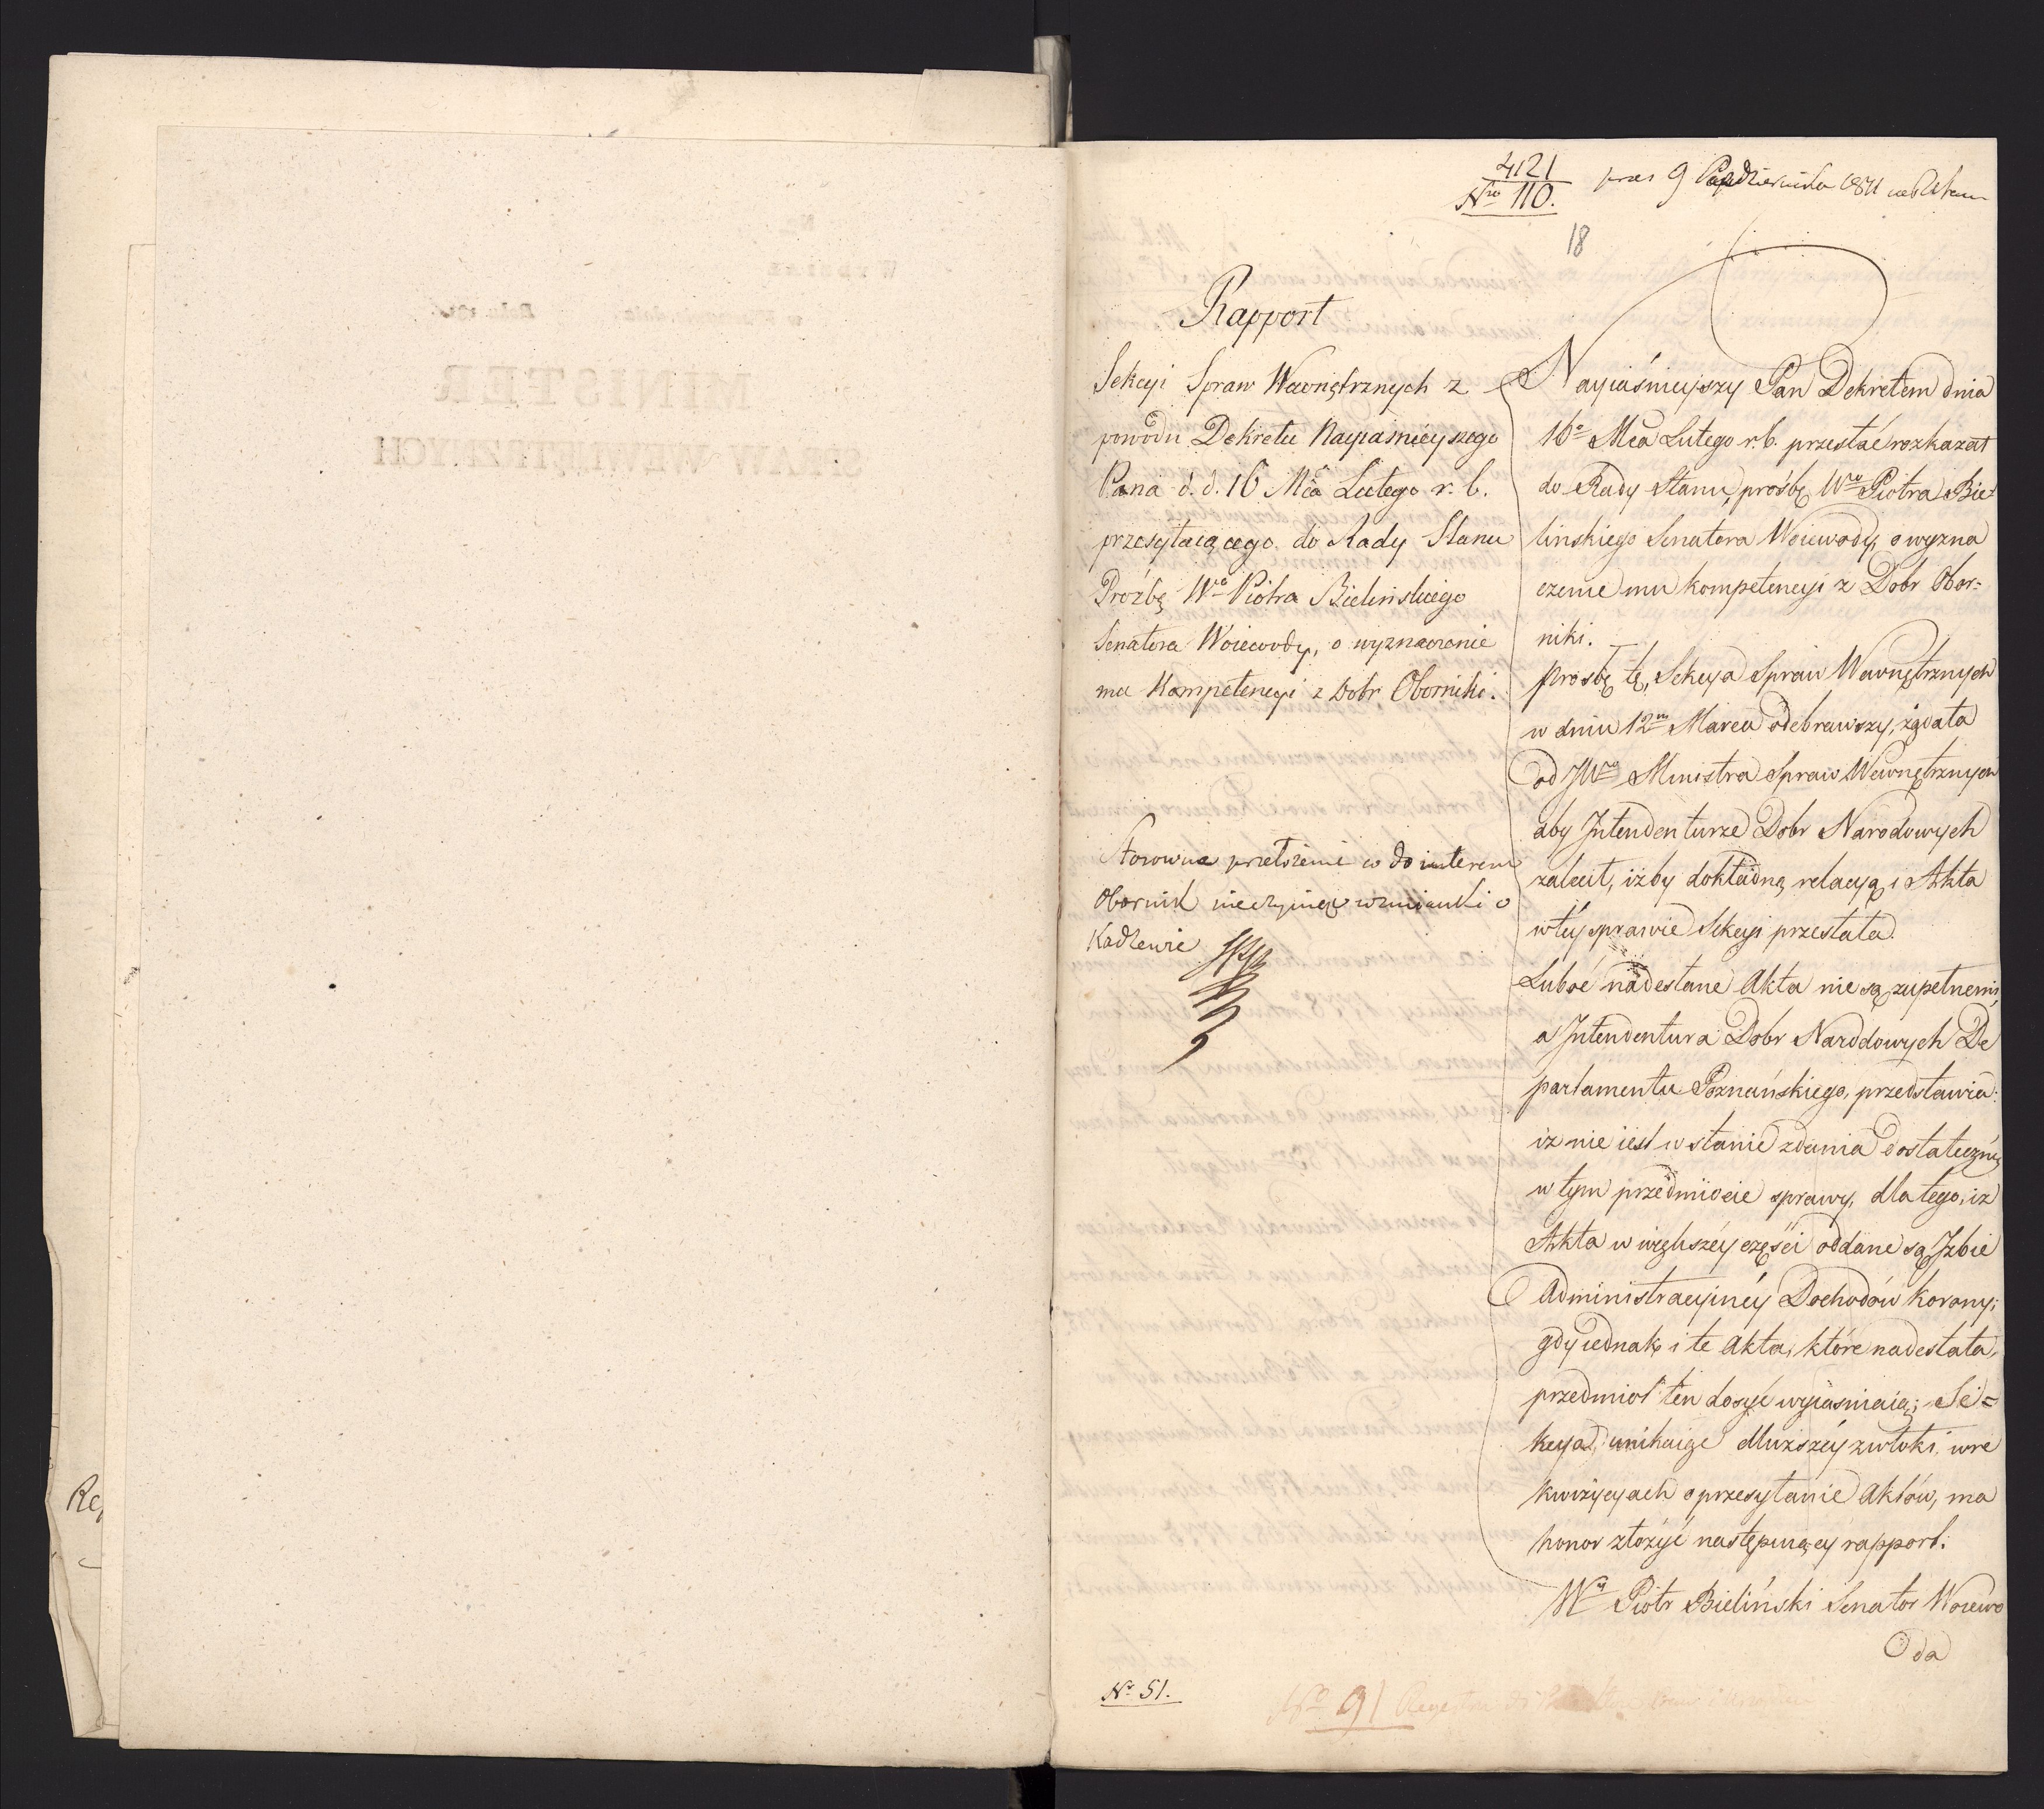 4121
Nro 110.
prez 9 Października 1811
18
Rapport
Sekcyi Spraw Wewnętrznych z
powodu Dekretu Nayiaśnieyszego
Pana d. d. 16 Mca Lutego r. b.
przesyłaiącego do Rady Stanu
Prozbę Wgo Piotra Bielinskiego
Senatora Woiewody, o wyznaczenie
mu Kompetencyi z Dobr Oborniki.
Stosowne przełożenie co do interesu
Obornik nieczyniąc wzmianki o
Kadzewie
Nayiaśnieyszy Pan Dekretem dnia
16o Mca Lutego r. b. przesłać rozkazał
do Rady Stanu, prośbę Wgo Piotra Bie-
linskiego Senatora Woiewody, o wyzna
czenie mu kompetencyi z Dobr Obor=
niki.
prosbę tę, Sekcya Spraw Wewnętrznych
w dniu 12m Marca odebrawszy, żądała
od JWgo Ministra Spraw Wewnętrznych
aby Intendenturze Dobr Narodowych
zalecił, iżby dokładną relacyą i Akta
w téy sprawie Sekcyi przesłała.
Lubo é nadesłane Akta nie są zupełnemi,
a Intendentura Dobr Narodowych De
partamentu Poznańskiego, przedstawia:
iz nie iest w stanie zdania dostateczney
w tym przedmiocie sprawy, dla tego, iz
Akta w większéy części oddane są Izbie
Administracyinéy Dochodów Korony;
gdy iednak i te Akta, które nadesłała,
przedmiot ten dosyć wyiasniaią; Se=
kcya unikaiąc dłuższéy zwłoki w re
kwizycyach o przesyłanie Aktów, ma
honor złożyć następuiący rapport.
Wny Piotr Bieliński Senator Woiewo
da
No 51.
No 91
MINISTER
SPRAW WEWNĘTRZNYCH
Re